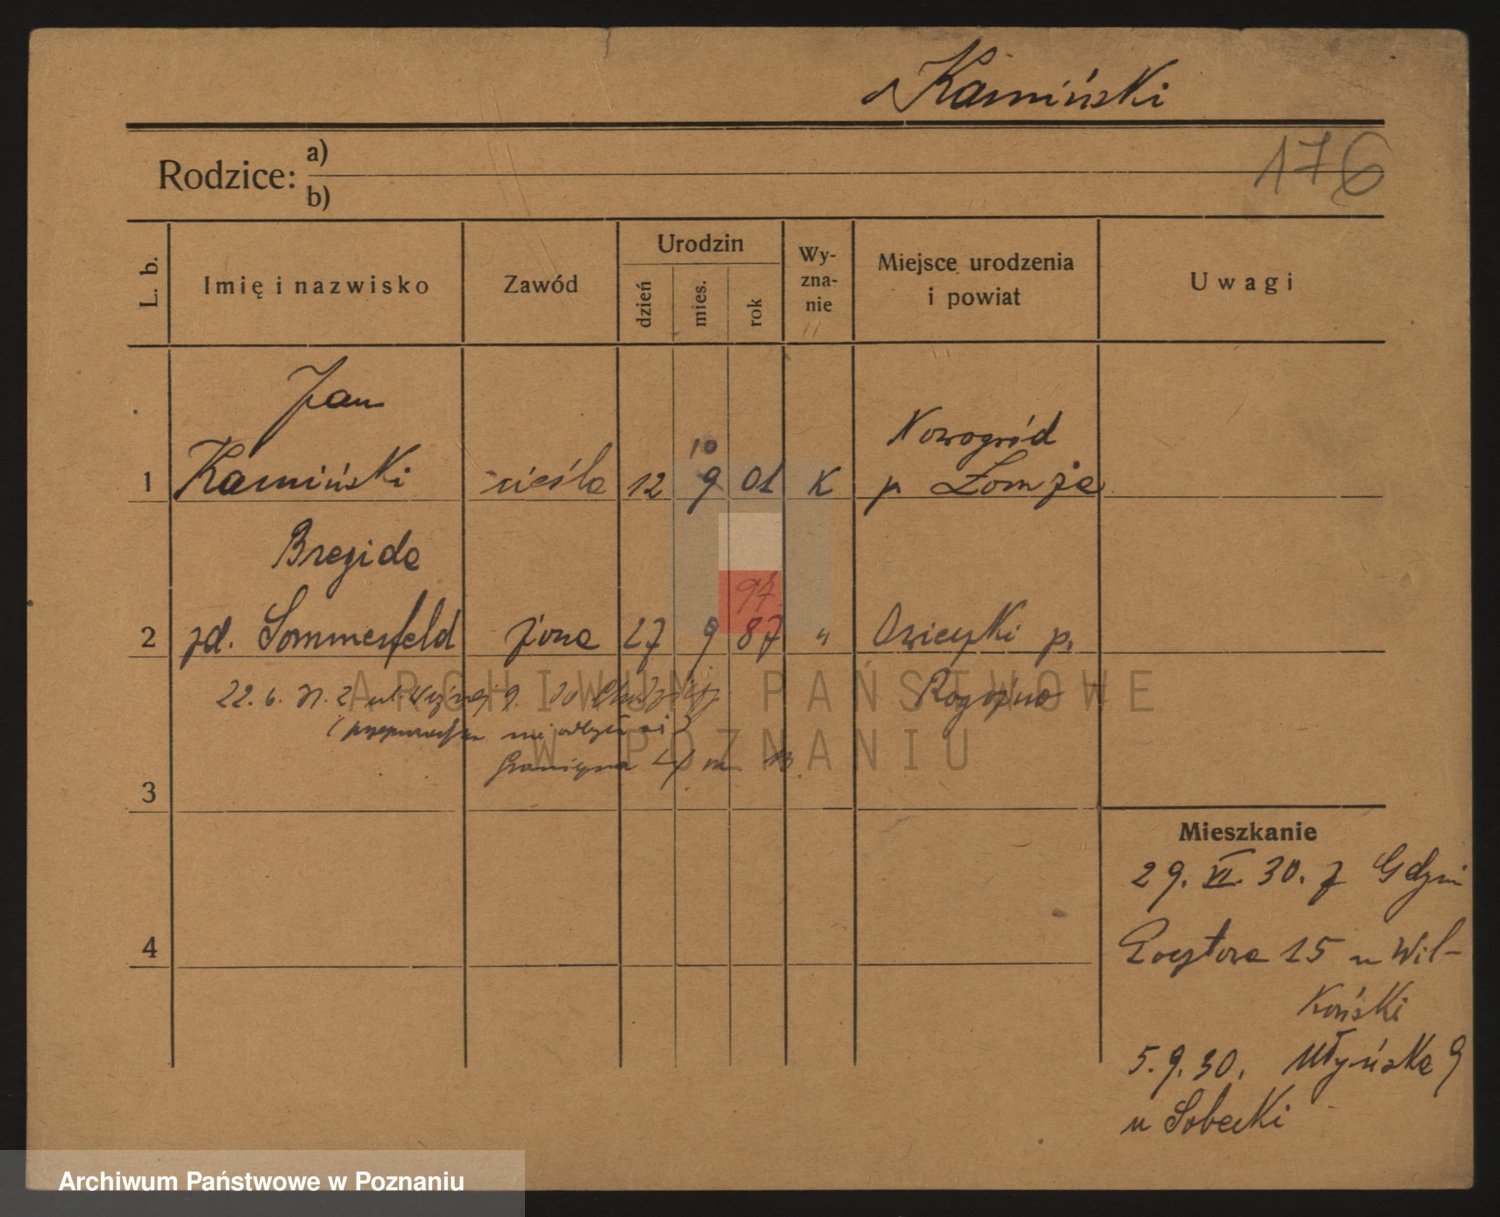 Kamiński
176
Rodzice: a)
b)
L. b.
Imię i nazwisko
Zawód
Urodzin
dzień
mies.
rok
Wy-
zna-
nie
Miejsce urodzenia
i powiat
Uwagi
Jan
10
Nowogród
1 Kamiński cieśla 12 9 01 K p Łomża
Brezida
94
2 zd. Sommerfeld żona 27 9 87 " Owieczki p.
Rogoźno
22. 6. 31. z ul.
Graniczna m. 13
3
4
Mieszkanie
29. VI. 30. z Gdyni
15 u Wil-
koński
5. 9. 30. Młyńska 9
u Sobecki
ARCHIWUM PAŃSTWOWE
W POZNANIU
Archiwum Państwowe w Poznaniu